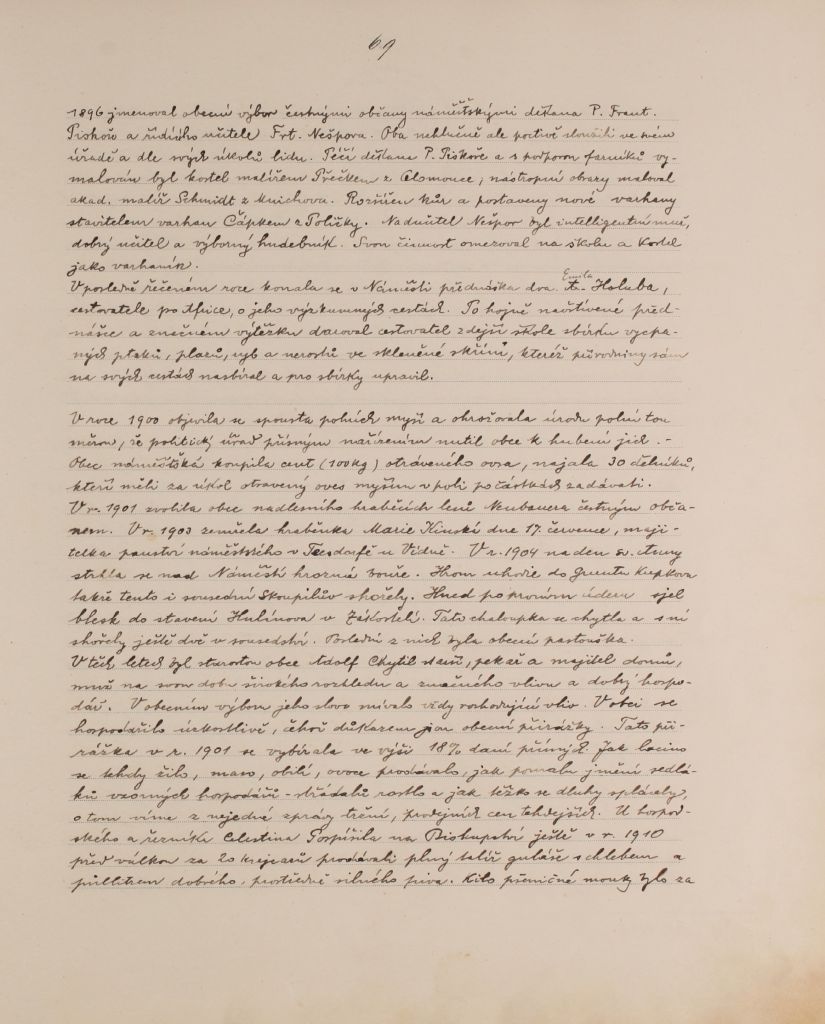 69
1896 jmenoval obecní výbor čestnými občany náměštskými děkana P. Frant.
Piskoře a řídícího učitele Frt. Nešpora. Oba nehlučně ale poctivě sloužili ve svém
úřadě a dle svých úkolů lidu. Péčí děkana P. Piskoře a s podporou farníků vy-
malován byl kostel malířem Přečkem z Olomouce; nástropní obrazy maloval
akad. malíř Schmidt z Mnichova. Rozšířen kůr a postaveny nové varhany
stavitelem varhan Čápkem z Poličky. Nadučitel Nešpor byl intelligentní muž,
dobrý učitel a výborný hudebník. Svou činnost omezoval na školu a kostel
jako varhaník.
V posledně řečeném roce konala se v Náměšti přednáška dra. Emila Holuba,
cestovatele po Africe, o jeho výzkumných cestách. Po hojně navštívené před-
nášce a značném výtěžku daroval cestovatel zdejší škole sbírku vycpa-
ných ptáků, plazů, ryb a nerostů ve skleněné skříni, kteréž přírodniny sám
na svých cestách nasbíral a pro sbírky upravil.
V roce 1900 objevila se spousta polních myší a ohrožovala úrodu polní tou
měrou, že politický úřad přísným nařízením nutil obce k hubení jich. -
Obec náměštská koupila cent (100 kg) otráveného ovsa, najala 30 dělníků,
kteří měli za úkol otrávený oves myším v poli po částkách zadávati.
V r. 1901 zvolila obec nadlesního hraběcích lesů Neubauera čestným obča-
nem. V r. 1903 zemřela hraběnka Marie Kinská dne 17. července, maji-
telka panství náměštského v Teesdorfě u Vídně. V r. 1904 na den sv. Anny
strhla se nad Náměští hrozná bouře. Hrom uhodil do gruntu Kupkova
takže tento i sousední Skoupilův shořely. Hned po prvním úderu sjel
blesk do stavení Hulínova v Zákostelí. Tato chaloupka se chytla a s ní
shořely ještě dvě v sousedství. Poslední z nich byla obecní pastouška.
V těch letech byl starostou obce Adolf Chytil starší, pekař a majitel domů,
muž na svou dobu širokého rozhledu a značného vlivu a dobrý hospo-
dář. V obecním výboru jeho slovo mívalo vždy rozhodující vliv. V obci se
hospodářilo úzkostlivě, čehož důkazem jsou obecní přirážky. Tato při-
rážka v r. 1901 se vybírala ve výši 18% daní přímých. Jak lacino
se tehdy žilo, maso, obilí, ovoce prodávalo, jak pomalu jmění sedlá-
ků vzorných hospodářů - střádalů rostlo a jak těžko se dluhy splácely,
o tom víme z nejedné zprávy tržní, prodejních cen tehdejších. U hospod-
ského a řezníka Celestina Pospíšila na Biskupství ještě v r. 1910
před válkou za 20 krejcarů prodávali plný talíř guláše s chlebem a
půllitrem dobrého, prostředně silného piva. Kilo pšeničné mouky bylo za